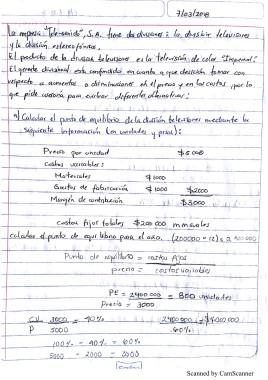 7/03/2018
La empresa "Tele-sonido", S.A. tiene dos divisiones: la división televisores
y la división estereofónica.
El producto de la división televisores es la televisión de color "Imperial".
El gerente divisional está confundido en cuanto a que decisión tomar con
respecto a aumentos o disminuciones en el precio y en los costos, por lo
que pide asesoría para evaluar diferentes alternativas:
a) Calcular el punto de equilibrio de la división televisores mediante la
siguiente información (en unidades y pesos):
Precio por unidad $5 000
Costos variables:
Materiales $1000
Gastos de fabricación $1000 $2000
Margen de contribución $3000
Costos fijos totales $200 000 mensuales
calcular el punto de equilibrio para el año. (200000 × 12) = 2 400 000
Punto de equilibrio = costos fijos
precio - costos variables
PE = 2400 000 = 800 unidades
Precio = 3000
C.V. 2000 = 40% 2400 000 = $4000 000
P 5000 60%
100% - 40% = 60%
5000 - 2000 = 3000
Scanned by CamScanner